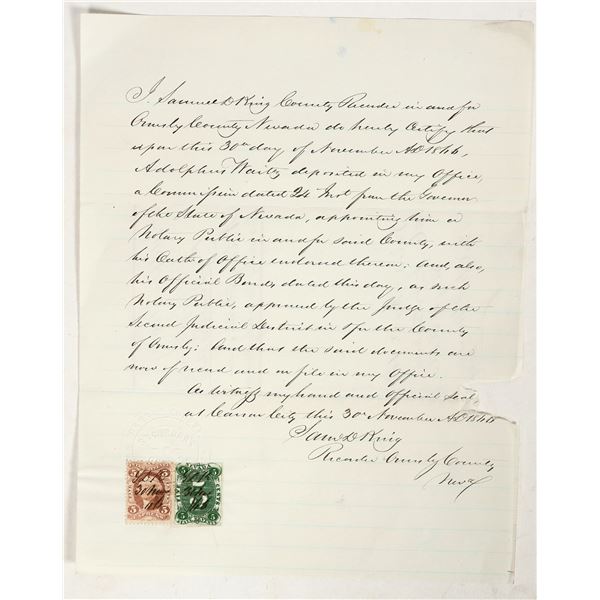 I. Samuel D King County Recorder in and for
Ormsby County Nevada do hereby Certify that
upon this 30th day of November A.D. 1866,
Adolphus Waitz deposited in my Office,
a Commission dated 24 Inst from the Governor
of the State of Nevada, appointing him a
Notary Public in and for said County, with
his Oath of Office endorsed thereon; And, also,
his Official Bond, dated this day, as such
Notary Public, approved by the Judge of the
Second Judicial District in & for the County
of Ormsby: And that the said documents are
now of record and on file in my Office.
As witness my hand and Official Seal,
at Carson City this 30th November A.D. 1866
Sam D King
Recorder Ormsby County
Neva
5 5
5 5